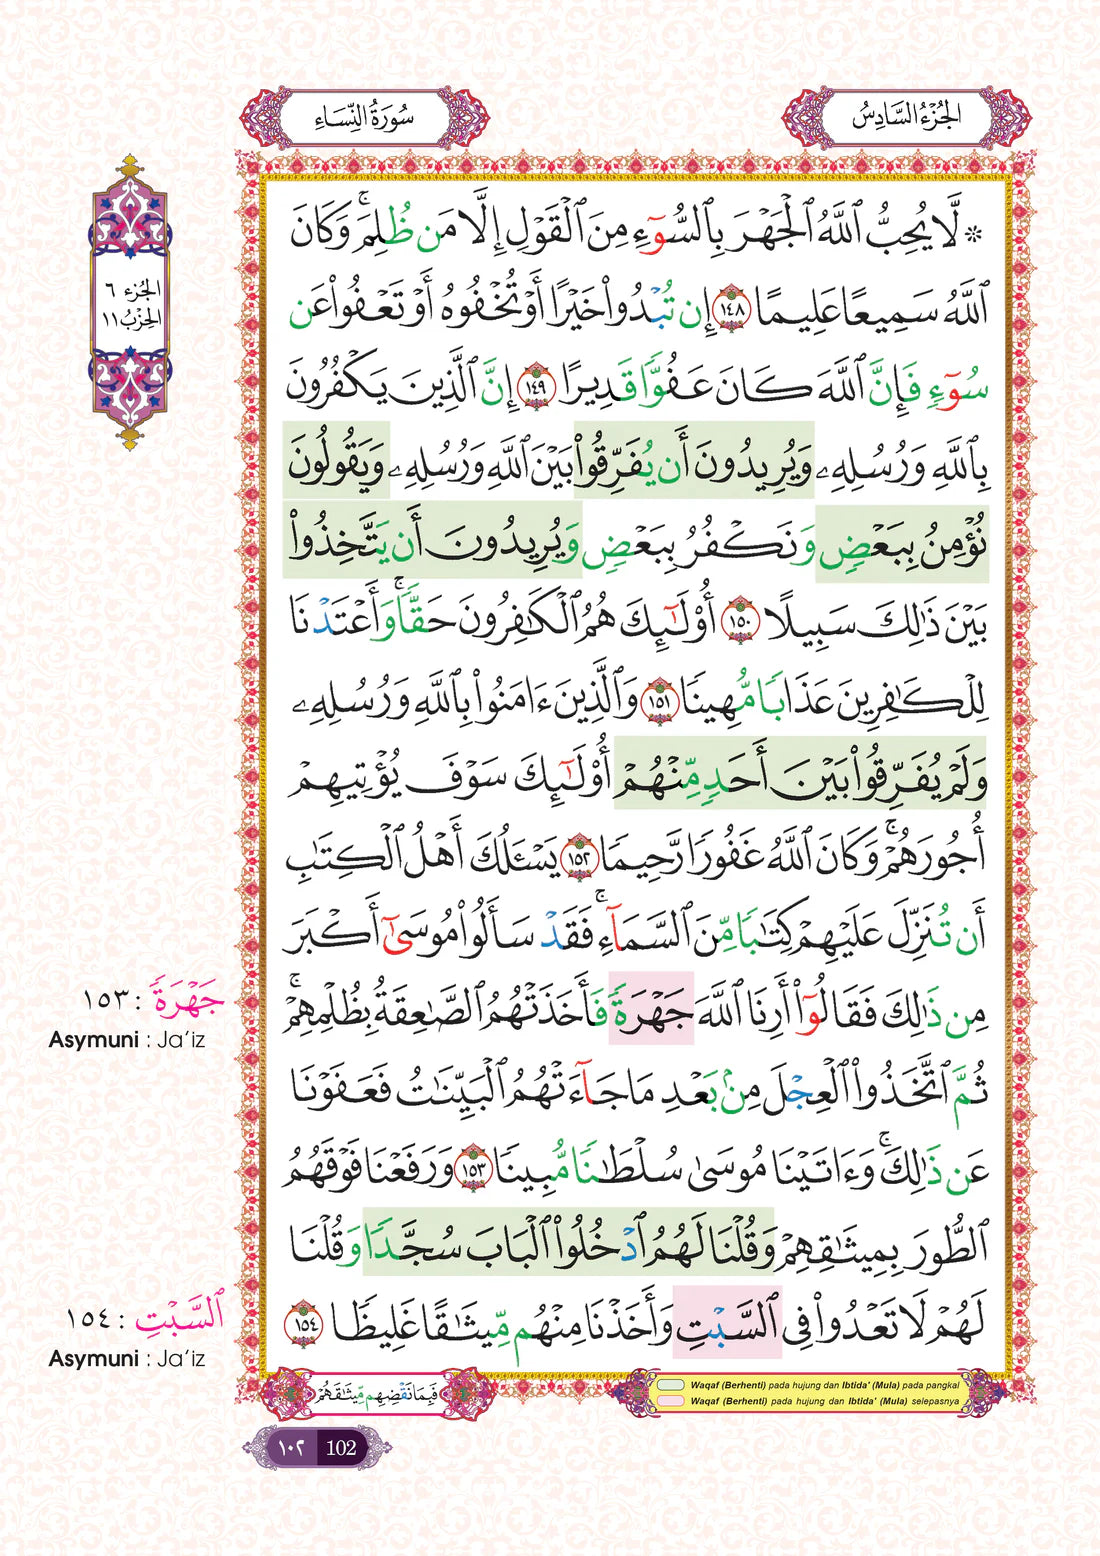 الجُزْءُ السَّادِسُ
سُورَةُ النِّسَاءِ
الجُزء ٦
الحِزْبُ ١١
۞ لَّا يُحِبُّ ٱللَّهُ ٱلْجَهْرَ بِٱلسُّوٓءِ مِنَ ٱلْقَوْلِ إِلَّا مَن ظُلِمَ ۚ وَكَانَ
ٱللَّهُ سَمِيعًا عَلِيمًا ١٤٨ إِن تُبْدُوا۟ خَيْرًا أَوْ تُخْفُوهُ أَوْ تَعْفُوا۟ عَن
سُوٓءٍ فَإِنَّ ٱللَّهَ كَانَ عَفُوًّا قَدِيرًا ١٤٩ إِنَّ ٱلَّذِينَ يَكْفُرُونَ
بِٱللَّهِ وَرُسُلِهِۦ وَيُرِيدُونَ أَن يُفَرِّقُوا۟ بَيْنَ ٱللَّهِ وَرُسُلِهِۦ وَيَقُولُونَ
نُؤْمِنُ بِبَعْضٍ وَنَكْفُرُ بِبَعْضٍ وَيُرِيدُونَ أَن يَتَّخِذُوا۟
بَيْنَ ذَٰلِكَ سَبِيلًا ١٥٠ أُو۟لَـٰٓئِكَ هُمُ ٱلْكَـٰفِرُونَ حَقًّا ۚ وَأَعْتَدْنَا
لِلْكَـٰفِرِينَ عَذَابًا مُّهِينًا ١٥١ وَٱلَّذِينَ ءَامَنُوا۟ بِٱللَّهِ وَرُسُلِهِۦ
وَلَمْ يُفَرِّقُوا۟ بَيْنَ أَحَدٍ مِّنْهُمْ أُو۟لَـٰٓئِكَ سَوْفَ يُؤْتِيهِمْ
أُجُورَهُمْ ۗ وَكَانَ ٱللَّهُ غَفُورًا رَّحِيمًا ١٥٢ يَسْـَٔلُكَ أَهْلُ ٱلْكِتَـٰبِ
أَن تُنَزِّلَ عَلَيْهِمْ كِتَـٰبًا مِّنَ ٱلسَّمَآءِ ۚ فَقَدْ سَأَلُوا۟ مُوسَىٰٓ أَكْبَرَ
مِن ذَٰلِكَ فَقَالُوٓا۟ أَرِنَا ٱللَّهَ جَهْرَةً فَأَخَذَتْهُمُ ٱلصَّـٰعِقَةُ بِظُلْمِهِمْ ۚ
ثُمَّ ٱتَّخَذُوا۟ ٱلْعِجْلَ مِنۢ بَعْدِ مَا جَآءَتْهُمُ ٱلْبَيِّنَـٰتُ فَعَفَوْنَا
عَن ذَٰلِكَ ۚ وَءَاتَيْنَا مُوسَىٰ سُلْطَـٰنًا مُّبِينًا ١٥٣ وَرَفَعْنَا فَوْقَهُمُ
ٱلطُّورَ بِمِيثَـٰقِهِمْ وَقُلْنَا لَهُمُ ٱدْخُلُوا۟ ٱلْبَابَ سُجَّدًا وَقُلْنَا
لَهُمْ لَا تَعْدُوا۟ فِى ٱلسَّبْتِ وَأَخَذْنَا مِنْهُم مِّيثَـٰقًا غَلِيظًا ١٥٤
جَهْرَةً : ١٥٣
Asymuni : Ja’iz
ٱلسَّبْتِ : ١٥٤
Asymuni : Ja’iz
Waqaf (Berhenti) pada hujung dan Ibtida’ (Mula) pada pangkal
Waqaf (Berhenti) pada hujung dan Ibtida’ (Mula) selepasnya
فَبِمَا نَقْضِهِم مِّيثَـٰقَهُمْ
١٠٢ 102